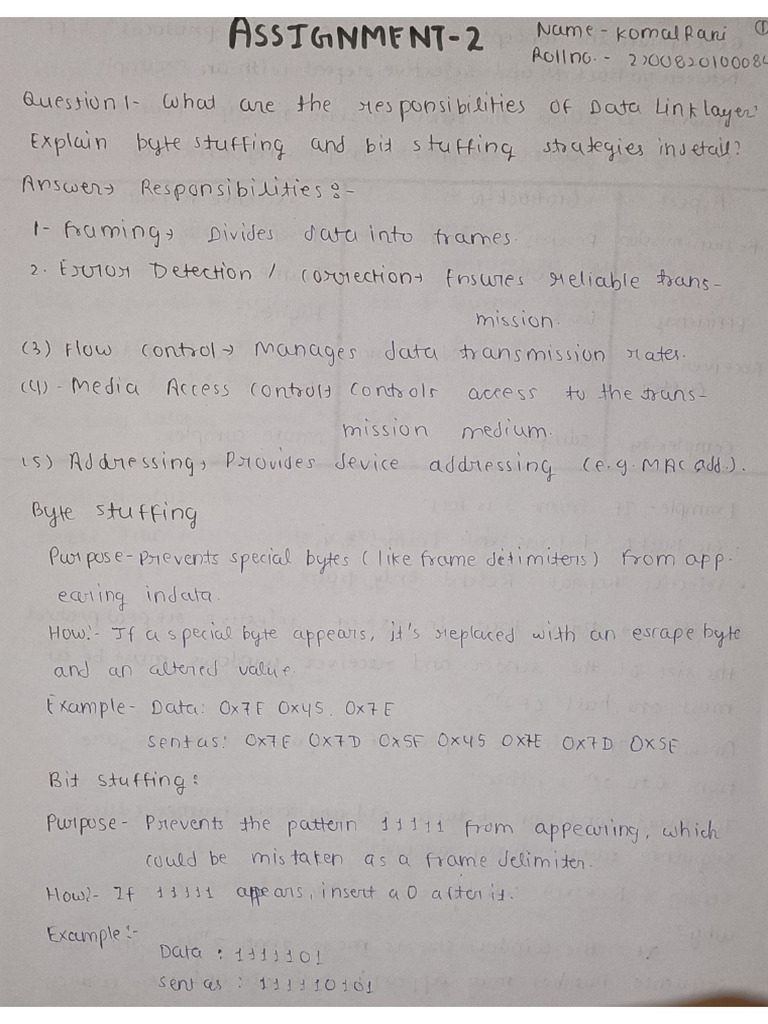 ASSIGNMENT-2
Name - Komal Rani
①
Rollno. - 2200820100084
Question 1- What are the responsibilities of Data Link layer?
Explain byte stuffing and bit stuffing strategies in detail?
Answer→ Responsibilities:-
1- Framing→ Divides data into frames.
2. Error Detection / Correction→ Ensures reliable trans-
mission.
(3) Flow control→ Manages data transmission rates.
(4)- Media Access control→ controls access to the trans-
mission medium.
(5) Addressing→ Provides device addressing (e.g. MAC add.).
Byte stuffing
Purpose - Prevents special bytes (like frame delimiters) from app-
earing in data.
How:- If a special byte appears, it's replaced with an escape byte
and an altered value.
Example - Data: 0x7E 0x45 0x7E
sent as: 0x7E 0x7D 0x5F 0x45 0x7E 0x7D 0x5E
Bit stuffing:
Purpose - Prevents the pattern 11111 from appearing, which
could be mistaken as a frame delimiter.
How:- If 11111 appears, insert a 0 after it.
Example:-
Data : 1111101
sent as : 111110101